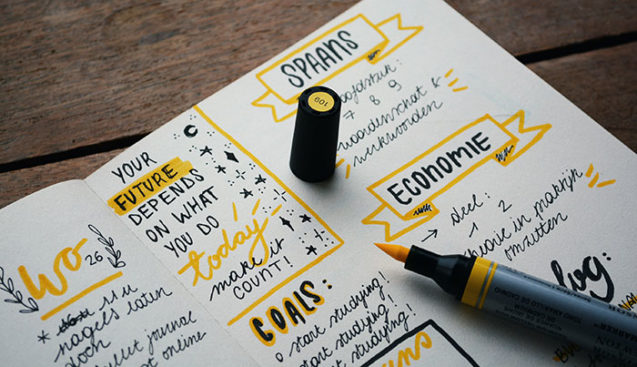 SPAANS
hoofdstuk:
7 8 9
woordenschat &
werkwoorden
ECONOMIE
→ deel:
1 2
theorie in praktijk
omzetten
YOUR
FUTURE
DEPENDS
ON WHAT
YOU DO
today
make it
COUNT!
GOALS:
o start studying!
start studying!
start studying!
Wo
26
nagels laten
doch
bullet journal
online
100